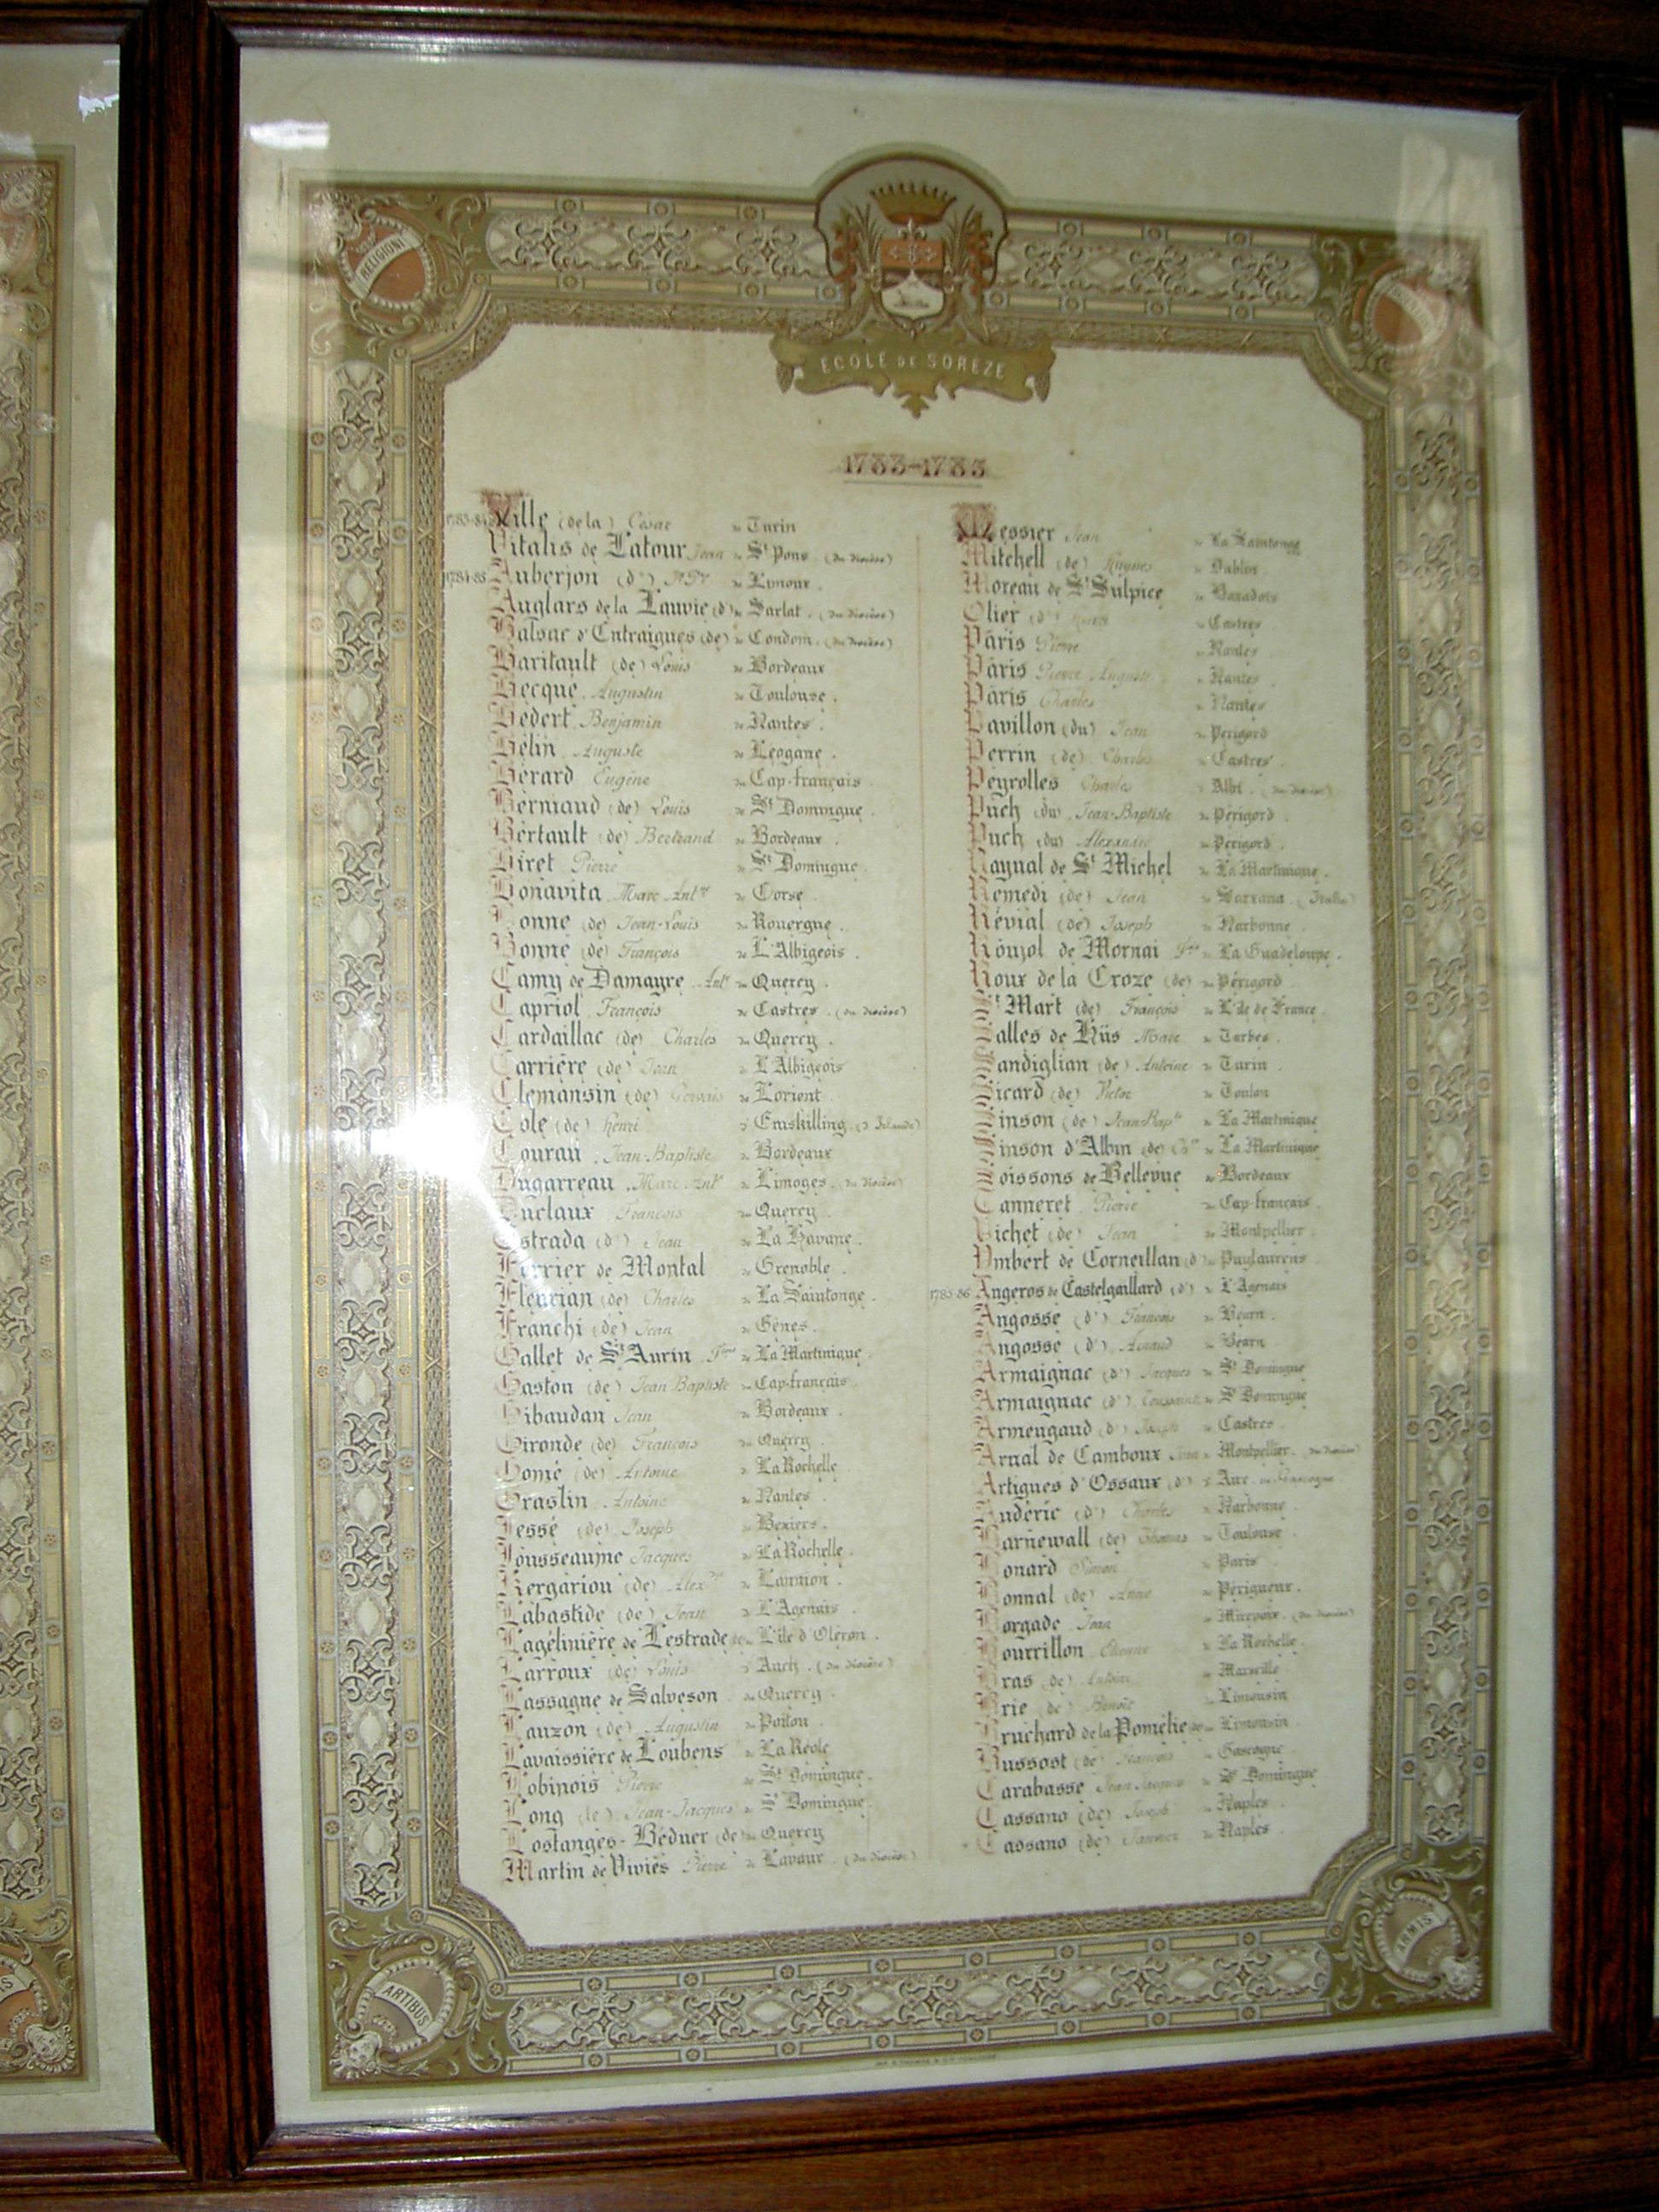 RELIGIONI
ÉCOLE DE SORÈZE
1783-1785
1783-84 Ville (de la) César de Turin
Vitalis de Latour Jean de St Pons. (du diocèse)
1784-85 Auberjon (d') de Limoux.
Auglars de la Lauvie (d') de Sarlat. (du diocèse)
Balsac d'Entraigues (de) de Condom. (du diocèse)
Baritault (de) Louis de Bordeaux
Becque Augustin de Toulouse.
Bedert Benjamin de Nantes.
Bélin Auguste de Léogane.
Bérard Eugène du Cap-français.
Berniaud (de) Louis de St Domingue.
Bertault (de) Bertrand de Bordeaux.
Biret Pierre de St Domingue.
Bonavita Marc Antne de Corse.
Bonne (de) Jean-Louis du Rouergue.
Bonne (de) François de L'Albigeois.
Camy de Damayre Antne du Quercy.
Capriol François de Castres. (du diocèse)
Cardaillac (de) Charles du Quercy.
Carrière (de) Jean de L'Albigeois
Clemansin (de) Gervais de Lorient.
Cole (de) Henri d'Emskilling. (d'Irlande)
Courau Jean-Baptiste de Bordeaux
Dugarreau Marc-Antne de Limoges. (du diocèse)
Duclaux François du Quercy.
Estrada (d') Jean de La Havane.
Ferrier de Montal de Grenoble.
Fleurian (de) Charles de La Saintonge.
Franchi (de) Jean de Gênes.
Gallet de St Aurin de La Martinique.
Gaston (de) Jean Baptiste du Cap-français.
Gibaudan Jean de Bordeaux.
Gironde (de) François du Quercy.
Gomé (de) Antoine de La Rochelle.
Graslin Antoine de Nantes.
Jessé (de) Joseph de Beziers.
Jousseaume Jacques de La Rochelle.
Kergariou (de) Alexdre de Lannion.
Labastide (de) Jean de L'Agenais.
Lagélinière de Lestrade de L'île d'Oléron.
Larroux (de) Louis d'Auch. (du diocèse)
Lassagne de Salveson du Quercy.
Lauzon (de) Augustin du Poitou.
Lavaissière de Loubens de La Réole
Lobinois Pierre de St Domingue.
Long (le) Jean-Jacques de St Domingue.
Lostanges-Béduer (de) du Quercy
Martin de Viviès Pierre de Lavaur. (du diocèse)
Messier Jean de La Saintonge
Mitchell (de) Hugues de Dublin.
Moreau de St Sulpice du Bazadois
Olier (d') de Castres
Pâris Pierre de Nantes.
Pâris Pierre Auguste de Nantes
Pâris Charles de Nantes
Pavillon (du) Jean du Périgord
Perrin (de) Charles de Castres.
Peyrolles Charles d'Albi. (du diocèse)
Puch (du) Jean-Baptiste du Périgord.
Puch (du) Alexandre du Périgord.
Raynal de St Michel de La Martinique.
Remedi (de) Jean de Sarzana. (Italie)
Révial (de) Joseph de Narbonne.
Roujol de Mornai de La Guadeloupe.
Roux de la Croze (de) du Périgord
St Mart (de) François de L'île de France.
Salles de Hüs Marc de Tarbes.
Sandiglian (de) Antoine de Turin.
Sicard (de) Victor de Toulon
Sinson (de) Jean-Bapte de La Martinique
Sinson d'Albin (de) de La Martinique
Soissons de Bellevue de Bordeaux
Tanneret Pierre du Cap-français.
Vichet (de) Jean de Montpellier.
Ymbert de Corneillan (d') de Puylaurens
1785-86 Angeros de Castelgaillard (d') de L'Agenais
Angosse (d') François du Béarn.
Angosse (d') Arnaud du Béarn
Armaignac (d') Jacques de St Domingue
Armaignac (d') Toussaint de St Domingue
Armengaud (d') Joseph de Castres.
Arnal de Camboux Jean de Montpellier. (du diocèse)
Artigues d'Ossaux (d') d'Aire en Gascogne.
Audéric (d') Charles de Narbonne.
Barnewall (de) Thomas de Toulouse.
Bonard Simon de Paris
Bonnal (de) Anne de Périgueux.
Borgade Jean de Mirepoix. (du diocèse)
Bourrillon Etienne de La Rochelle.
Bras (de) Antoine de Marseille
Brie (de) Benoît du Limousin
Bruchard de la Pomélie (de) du Limousin
Bussost (de) François de Gascogne
Carabasse Jean Jacques de St Domingue
Cassano (de) Joseph de Naples.
Cassano (de) Janvier de Naples.
ARTIBUS
ARMIS